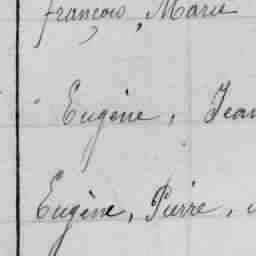 françois, Marie
Eugène, Jean
Eugène, Pierre,